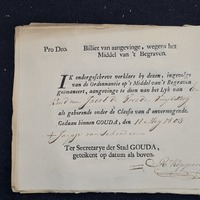 Pro Deo. Billet van aangevinge, wegens het
Middel van 't Begraven.
IK ondergeschreve verklare by dezen, ingevolge
van de Ordonnantie op 't Middel van 't Begraven
geëmaneert, aangevinge te doen van het Lyk van
als gehorende onder de Classe van d'onvermogende.
Gedaan binnen GOUDA, den 11 May 1803
Ter Secretarye der Stad GOUDA,
geteikent op datum als boven.